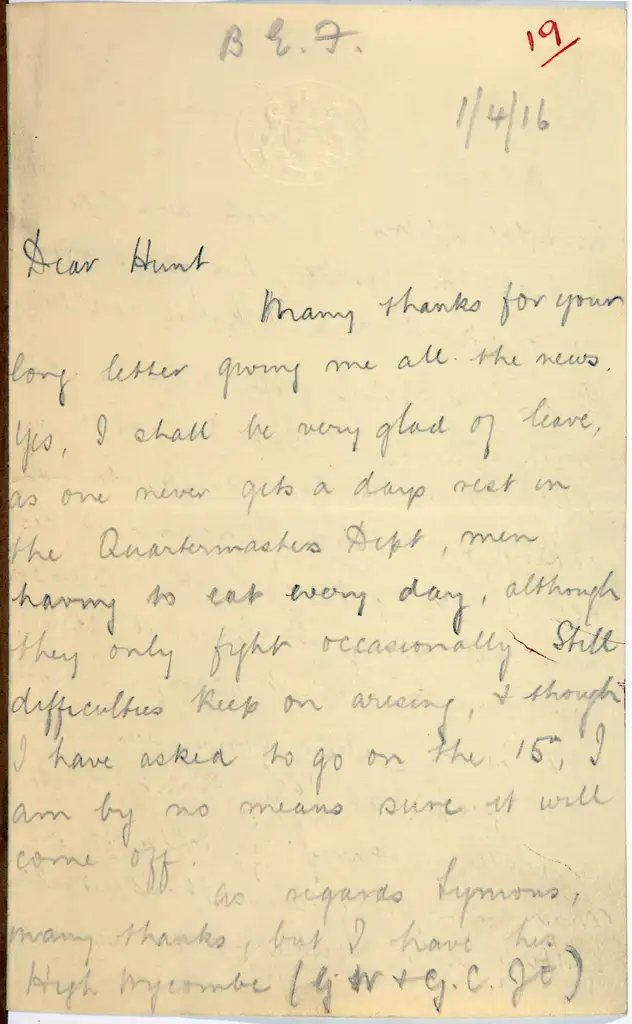 B E. F.
19
1/4/16
Dear Hunt
Many thanks for your
long letter giving me all the news.
Yes, I shall be very glad of leave,
as one never gets a days rest in
the Quartermasters Dept, men
having to eat every day, although
they only fight occasionally Still
difficulties keep on arising, & though
I have asked to go on the 15th, I
am by no means sure it will
come off.
As regards Symons,
many thanks, but I have his
High Wycombe (G W & G. C. Jt)